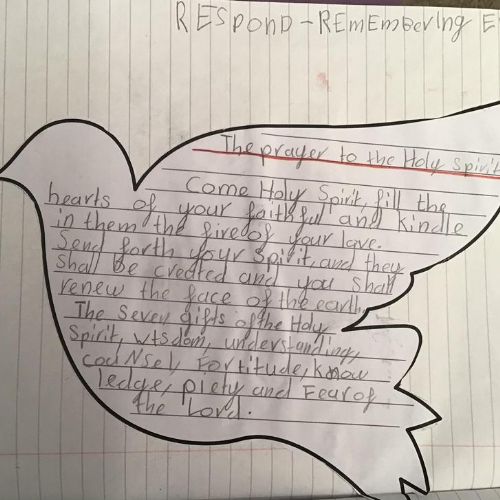 RESpOnD - REmEmbering E
The prayer to the Holy Spirit
Come Holy Spirit, fill the
hearts of your faithful and kindle
in them the fire of your love.
Send forth your Spirit, and they
shall be created and you shall
renew the face of the earth.
The seven gifts of the Holy
Spirit, wisdom, understanding,
couNsel, Fortitude, know
ledge, piety and Fear of
the Lord.